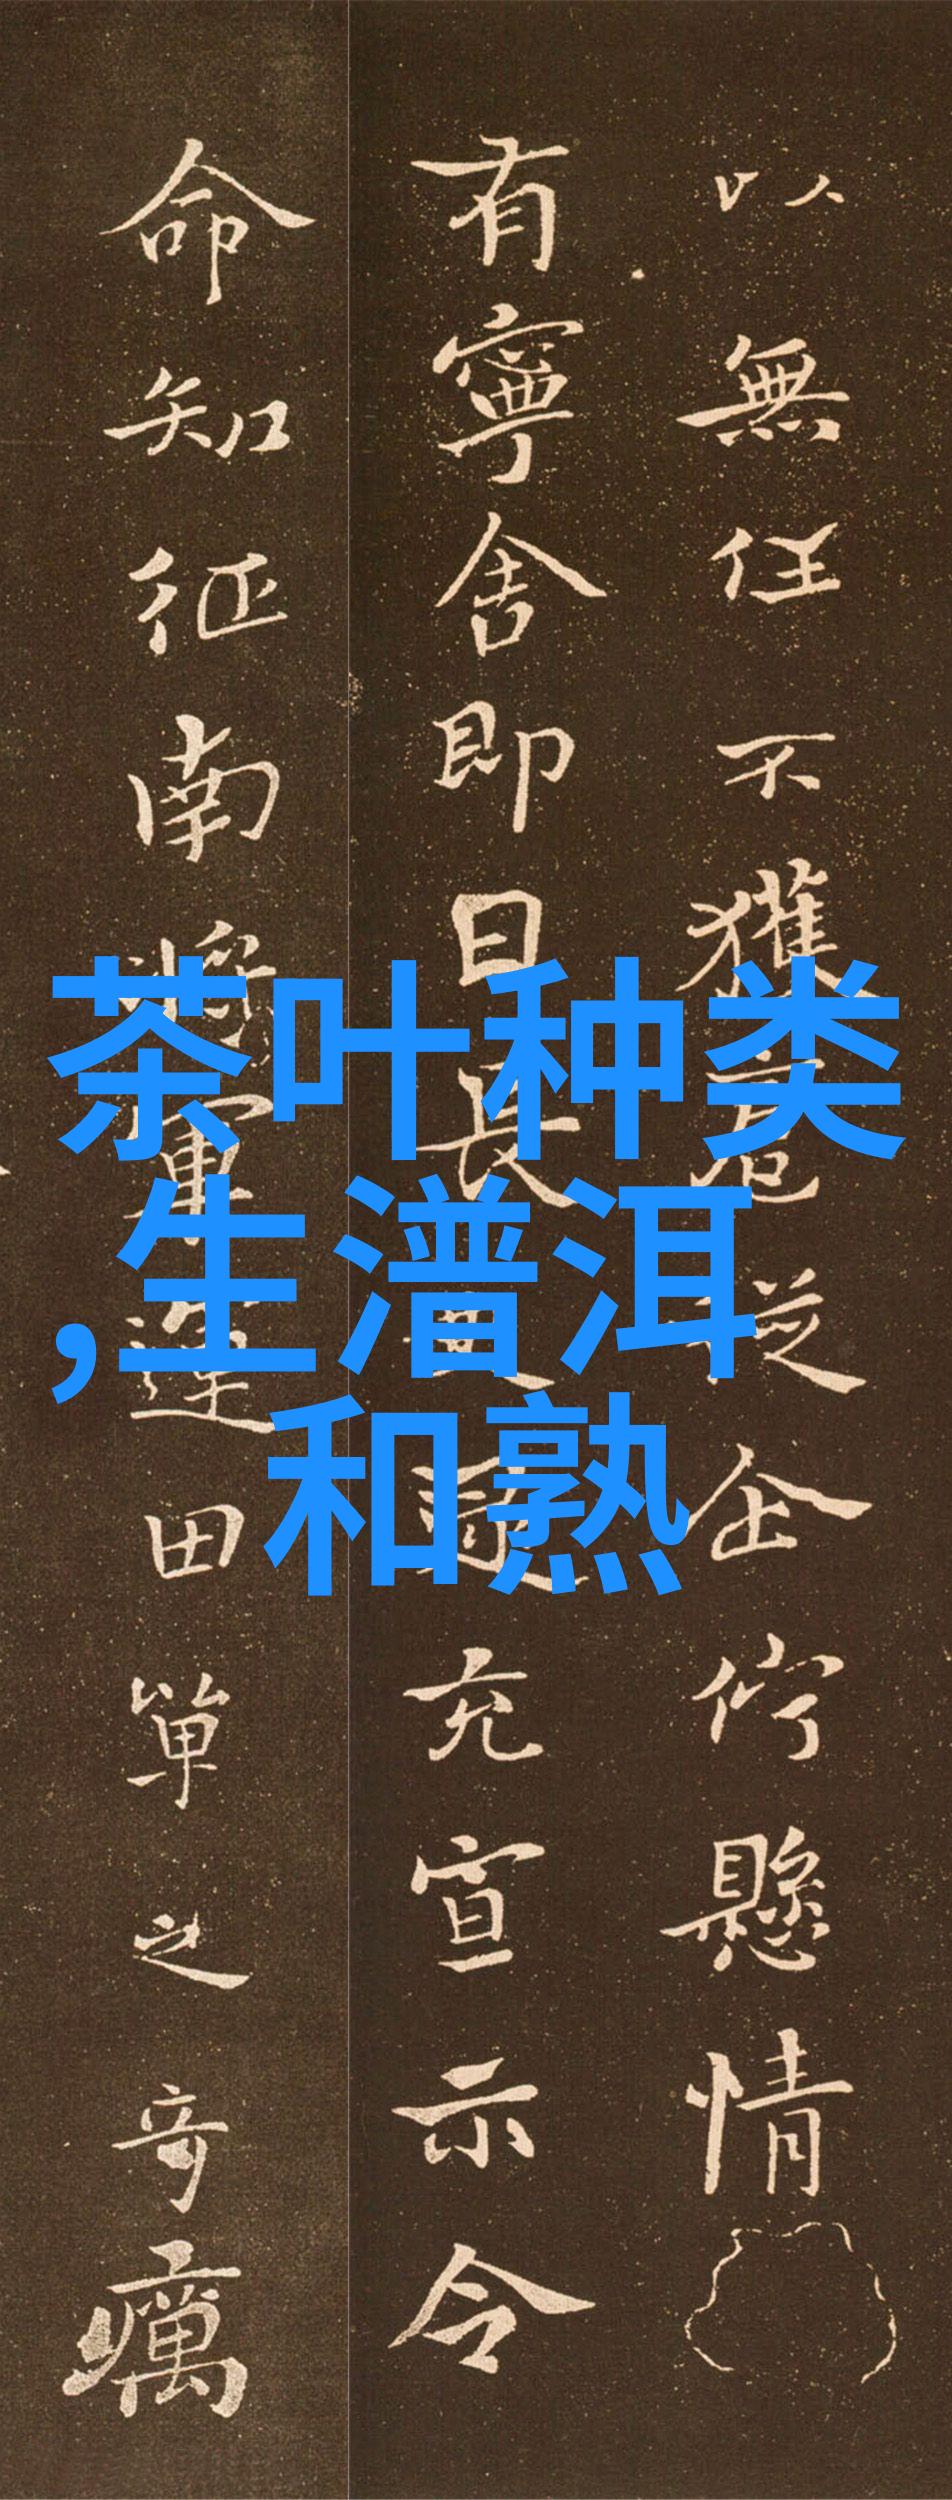 以無任不獲扈從企佇懸情
有寧舍即日長充宣示令
命知征南將軍運田單之奇癘
茶叶种类
,生潽洱
和熟